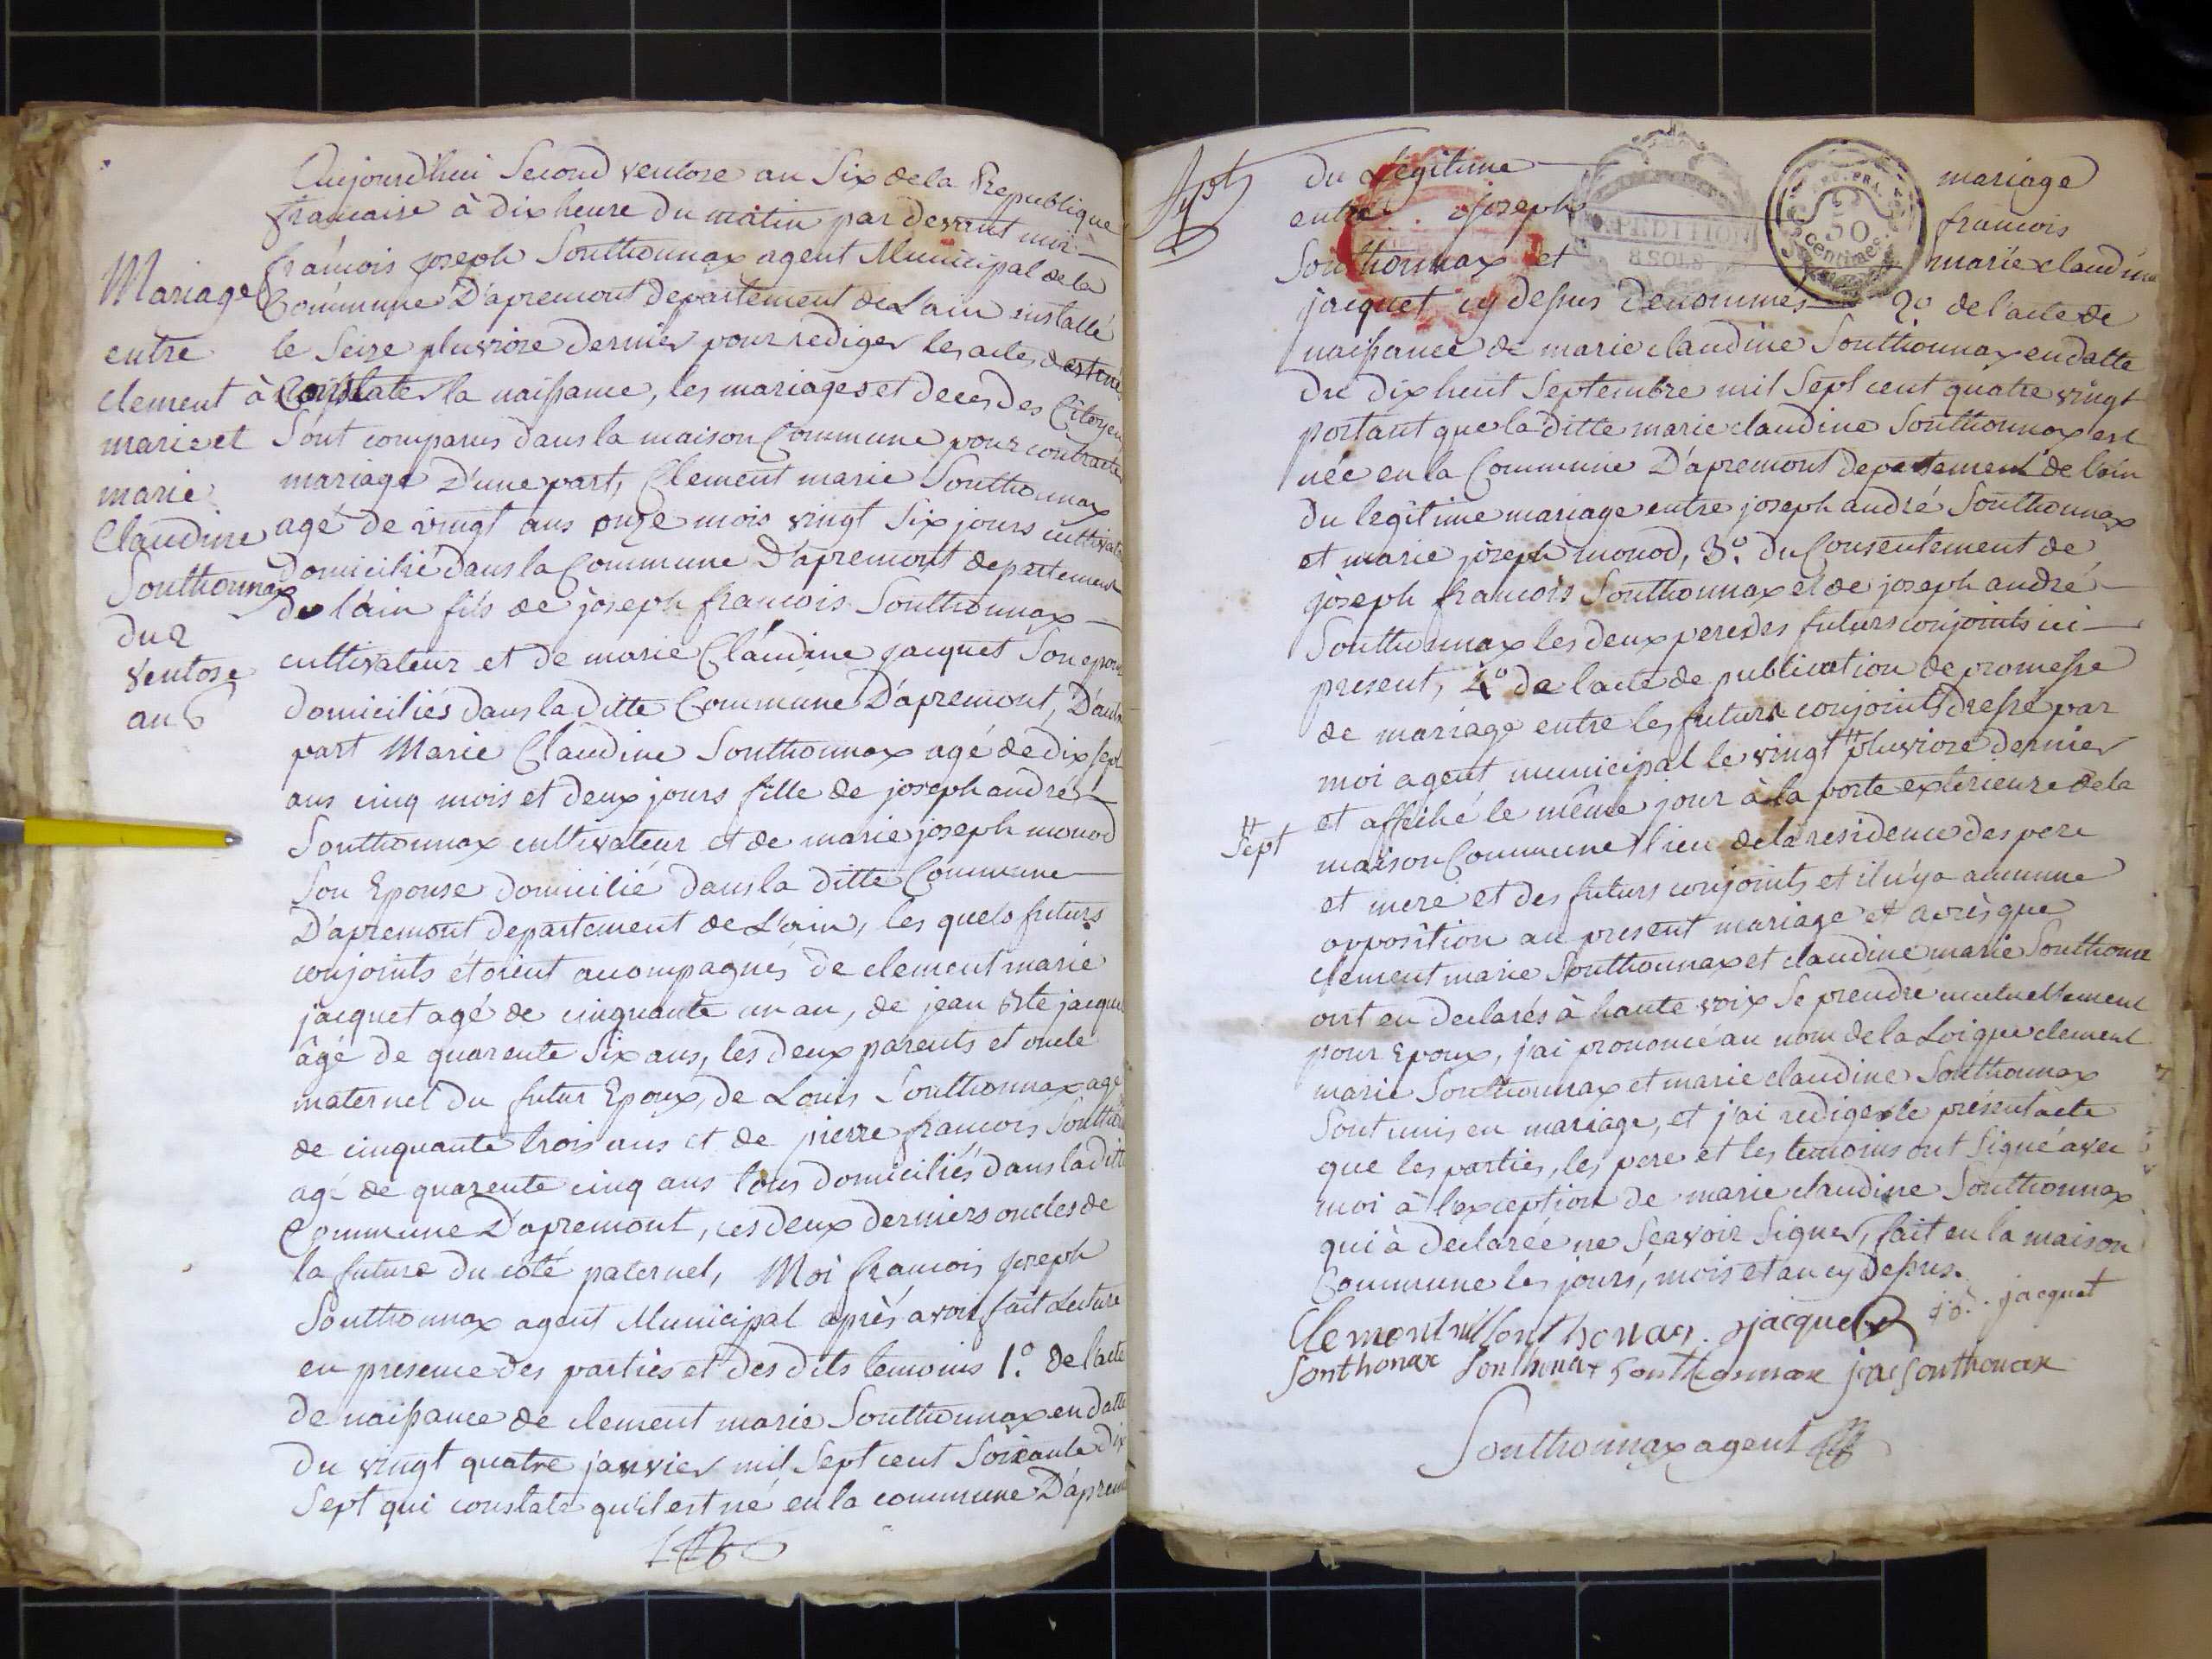 Aujourd'hui Second ventose an Six de la Republique
francaise à dix heure du matin par devant moi
francois joseph Sonthonnax agent Municipal de la
Commune D'apremont departement de Lain installé
le Seize pluviose dernier pour rediger les actes destinés
à Constater la naissance, les mariages et deces des Citoyens
Sont comparus dans la maison Commune pour contracter
mariage D'une part, Clement marie Sonthonnax
agé de vingt ans onze mois vingt Six jours cultivat
domicilié dans la Commune D'apremont departement
de l'ain fils de joseph francois Sonthonnax
cultivateur et de marie Claudine jacquet Son epouse
domiciliés dans la ditte Commune D'apremont, D'autre
part Marie Claudine Sonthonnax agé de dix sept
ans cinq mois et deux jours fille de joseph andré
Sonthonnax cultivateur et de marie joseph monod
Son Epouse domicilié dans la ditte Commune
D'apremont departement de L'ain, les quels futurs
conjoints étoient acompagnés de clement marie
jacquet agé de cinquante un an, de jean Bte jacquet
âgé de quarente Six ans, les deux parents et oncle
maternel du futur Epoux, de Louis Sonthonnax agé
de cinquante trois ans et de pierre francois Sonthon
agé de quarente cinq ans tous domiciliés dans la ditte
Commune D'apremont, ces deux derniers oncles de
la future du coté paternel, Moi francois joseph
Sonthonnax agent Municipal après avoir fait Lecture
en presence des parties et des dits temoins 1.° de l'acte
de naissance de clement marie Sonthonnax en datte
du vingt quatre janvier mil Sept cent Soixante dix
Sept qui constate qu'il est né en la commune D'apremon
Mariage
entre
clement
marie et
marie
Claudine
Sonthonnax
du 2
ventose
an 6
du Legitime mariage
entre joseph francois
Sonthonnax et marie claudine
jacquet cy dessus denommés 2° de l'acte de
naissance de marie claudine Sonthonnax en datte
du dix huit Septembre mil Sept cent quatre vingt
portant que la ditte marie claudine Sonthonnax est
née en la Commune D'apremont departement de lain
du legitime mariage entre joseph andré Sonthonnax
et marie joseph monod, 3.° du Consentement de
joseph francois Sonthonnax et de joseph andré
Sonthonnax les deux pere des futurs conjoints ici
present, 4° de l'acte de publication de promesse
de mariage entre les futurs conjoints dressé par
moi agent municipal le vingt # pluviose dernier
et affiché le même jour à la porte exterieure de la
maison Commune lieu de la residence des pere
et mere et des futurs conjoints et il n'y a aucunne
opposition au present mariage et après que
clement marie Sonthonnax et claudine marie Sonthonna
ont eu declarés à haute voix Se prendre mutuellement
pour Epoux, j'ai prononcé au nom de la Loi que clement
marie Sonthonnax et marie claudine Sonthonnax
Sont unis en mariage, et j'ai rediger le présent acte
que les parties, les pere et les temoins ont Signé avec
moi à l'exception de marie claudine Sonthonnax
qui à declarée ne Seavoir Signer, fait en la maison
Commune les jours, mois et an cy dessus.
# Sept
Clement m Sonthonax . jacquet j.b. jacquet
Sonthonax Sonthonax Sonthonnax j a Sonthonax
Sonthonnax agent
EXPEDITION
8 SOLS
REP. FRA.
50
centimes.